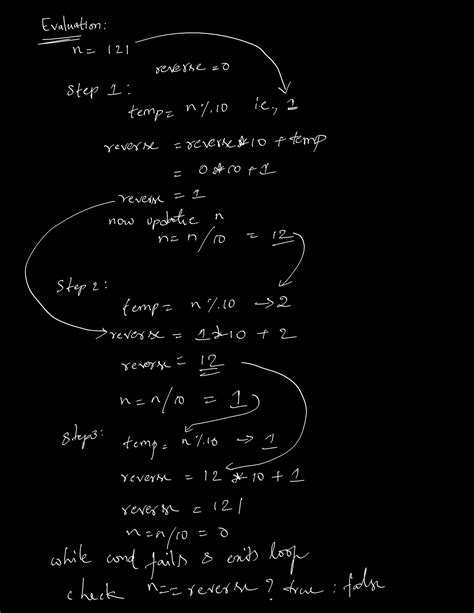 Evaluation:
n = 121
reverse = 0
Step 1:
temp = n%10 i.e., 1
reverse = reverse*10 + temp
= 0*10+1
reverse = 1
now update n
n = n/10 = 12
Step 2:
temp = n%10 → 2
reverse = 1*10 + 2
reverse = 12
n = n/10 = 1
Step3: temp = n%10 → 1
reverse = 12*10+1
reverse = 121
n=n/10 = 0
while cond fails & exits loop
check n==reverse? true : false